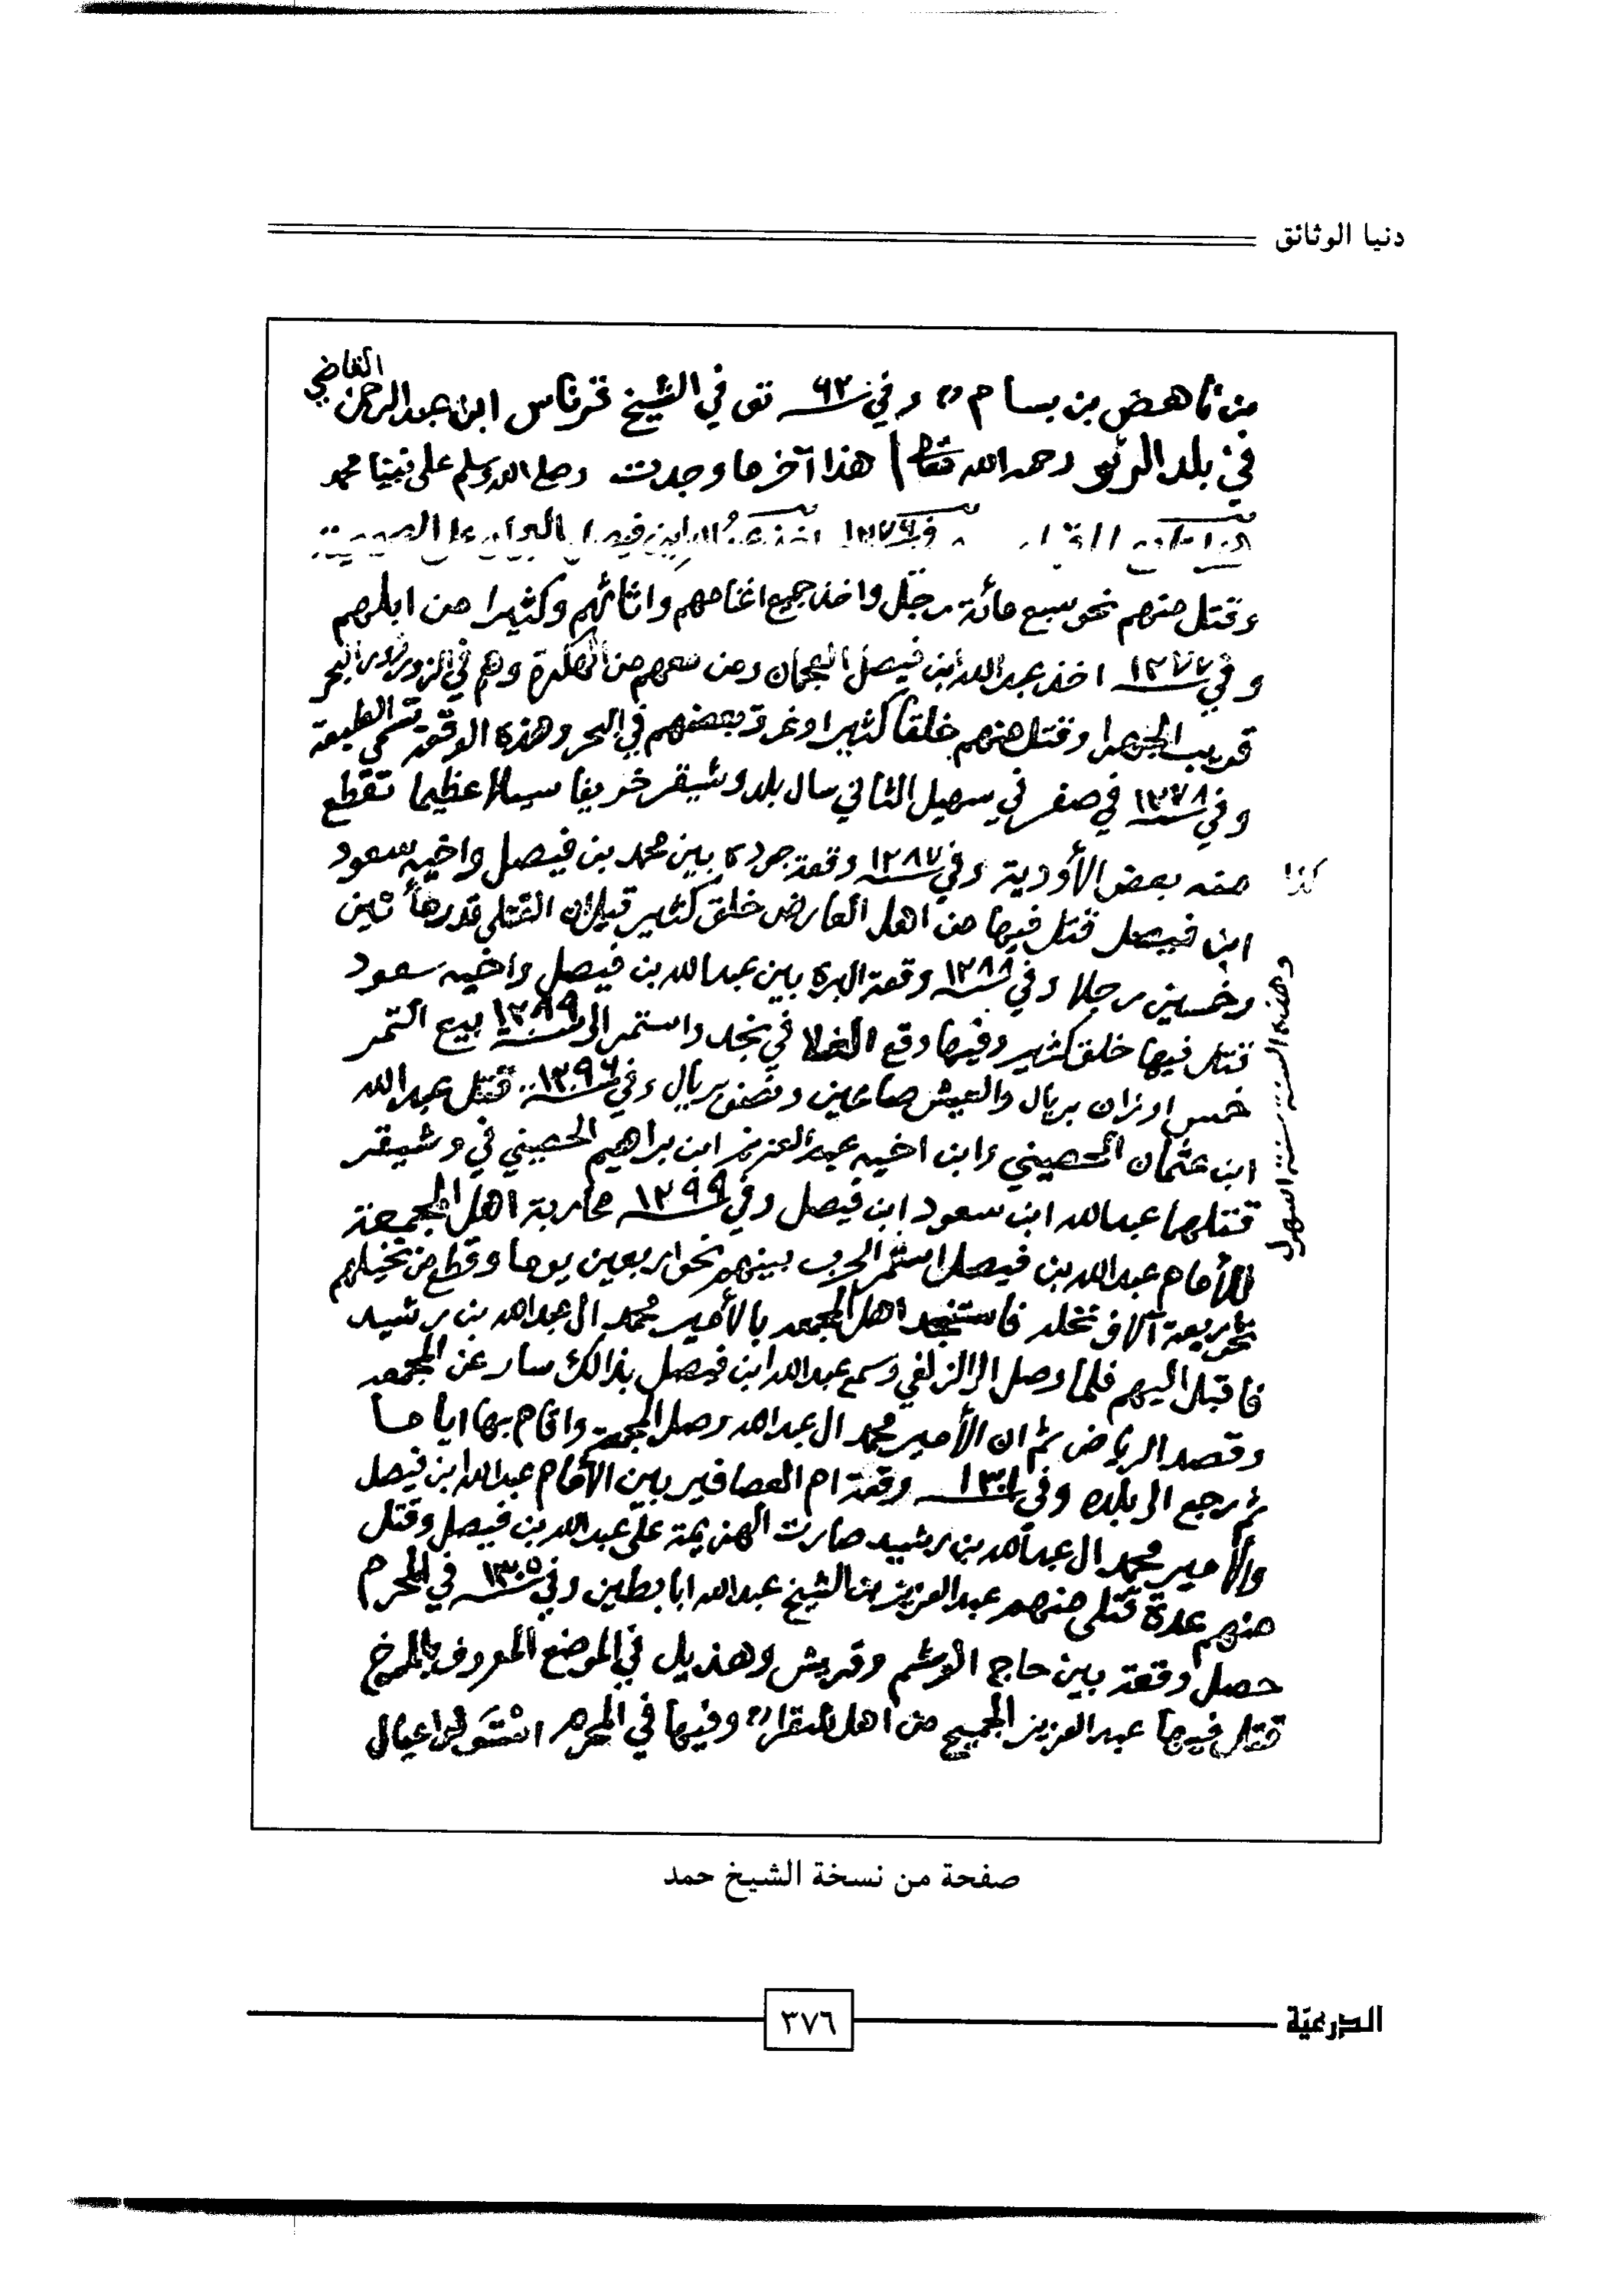 دنيا الوثائق
القاضي
من ناهض بن بسام وفي سنة ٦٣ توفي الشيخ قرناس ابن عبدالرحمن
في بلد الرس رحمه الله تعالى هذا آخر ما وجدت وصلى الله وسلم على نبينا محمد
وفي ١٢٧٦ اخذ عبدالله ابن فيصل العجمان على الصبيحية
وقتل منهم نحو سبع مائة رجل واخذ جميع اغنامهم واثاثهم وكثيرا من ابلهم
وفي سنة ١٢٧٧ اخذ عبدالله ابن فيصل العجمان ومن معهم من وهم في البحر
قريب الجهرا وقتل منهم خلقاً كثيرا وغرق بعضهم في البحر وهذه الوقعة تسمى الطبعة
وفي سنة ١٢٧٨ في صفر في سهيل الثاني سال بلد وشيقر خريفا سيلا عظيما تقطع
منه بعض الأودية وفي سنة ١٢٨٧ وقعة جوده بين محمد بن فيصل واخيه سعود
كذا
ابن فيصل قتل فيها من اهل العارض خلق كثير قيل ان القتلى قدرها مأتين
وخمسين رجلا وفي سنة ١٢٨٨ وقعة البره بين عبدالله بن فيصل واخيه سعود
قتل فيها خلق كثير وفيها وقع الغلا في نجد واستمر الى سنة ١٢٨٩ بيع التمر
خمس اوزان بريال والعيش صاعين ونصف بريال وفي سنة ١٢٩٦ قتل عبدالله
ابن عثمان الحصيني وابن اخيه عبدالعزيز ابن براهيم الحصيني في وشيقر
قتلهما عبدالله ابن سعود ابن فيصل وفي سنة ١٢٩٩ محاربة اهل المجمعة
للأمام عبدالله بن فيصل استمر الحرب بينهم نحو اربعين يوما وقطع من نخيلهم
نحو اربعة آلاف نخله فاستنجد اهل المجمعه بالأمير محمد ال عبدالله بن رشيد
فاقبل اليهم فلما وصل الى الزلفي وسمع عبدالله ابن فيصل بذالك سار عن المجمعه
وقصد الرياض ثم ان الأمير محمد ال عبدالله وصل المجمعة واقام بها اياما
ثم رجع الى بلده وفي سنة ١٣٠١ وقعة ام العصافير بين الأمام عبدالله ابن فيصل
والأمير محمد ال عبدالله بن رشيد صارت الهزيمة على عبدالله بن فيصل وقتل
منهم عدة قتلى منهم عبدالعزيز بن الشيخ عبدالله ابابطين وفي سنة ١٣٠٥ في المحرم
حصل وقعة بين حاج الوشم وقريش وهذيل في الموضع المعروف بالمرخ
قتل فيها عبدالعزيز الجميح من اهل شقرا وفيها في المحرم عيال
وهذه السنة سنة
صفحة من نسخة الشيخ حمد
٣٧٦
الدرعيّة